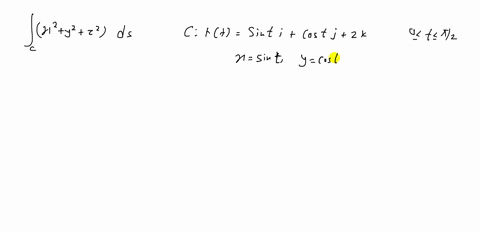 ∫_C (x²+y²+z²) ds   C: r(t) = Sint i + Cost j + 2k   0 ≤ t ≤ π/2
x = sint, y = cost